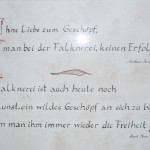 hne Liebe zum Geschöpf,
man bei der Falknerei, keinen Erfol
alknerei ist auch heute noch
unst, ein wildes Geschöpf an sich zu b
n man ihm immer wieder die Freiheit